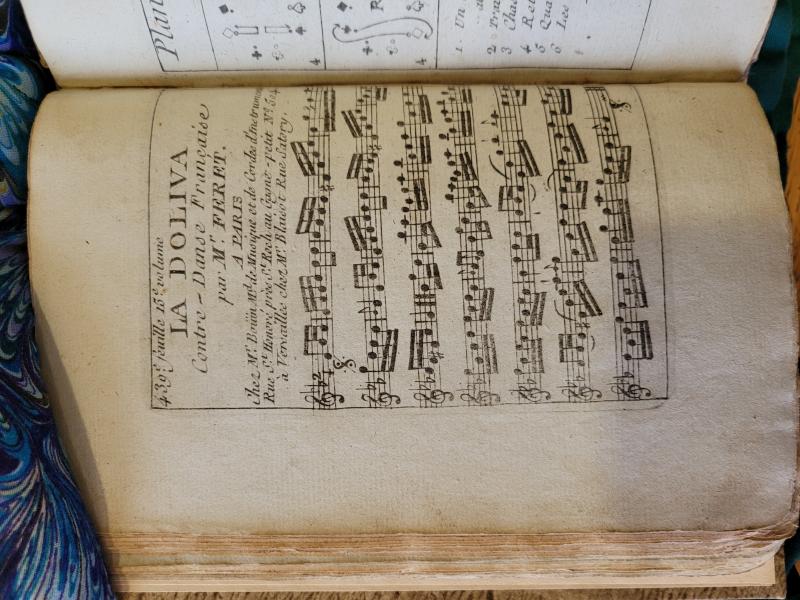 439e feuille 15e volume
LA DOLIVA
Contre-Danse Française
par Mr. FERET.
A PARIS
Chez Mr. Boüin Md. de Musique et de Cordes d'Instrumens
Rue St. Honoré près St. Roch au Gagne-petit No. 504
à Versailles chez Mr. Blaizot Rue Satory.
2
Plain
4
4
1. Un
2
3 Chai
4
5
6 Les